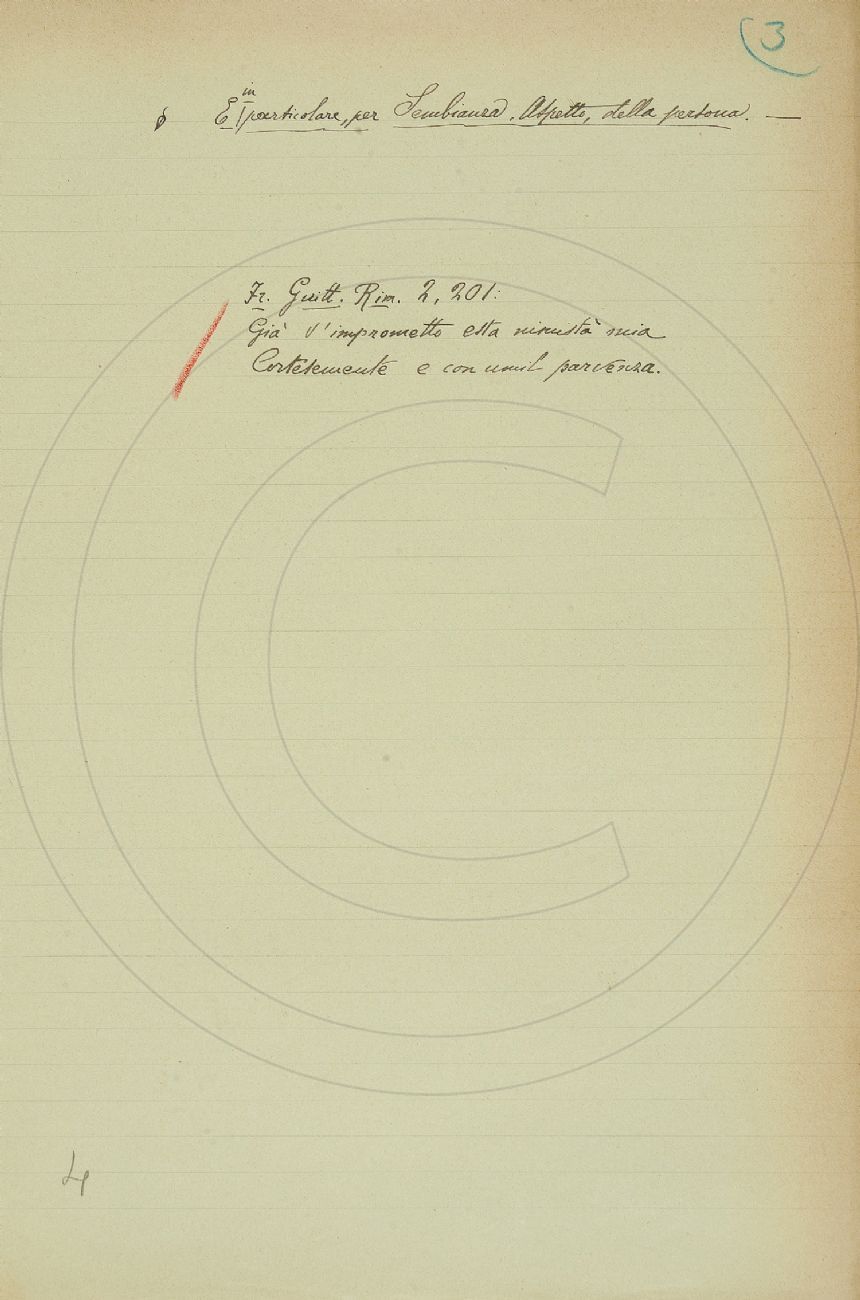 3
§ E in particolare, per Sembianza, Aspetto, della persona. —
Fr. Guitt. Rim. 2, 201:
Già v'imprometto esta mia
Cortesemente e con umil parvenza.
4